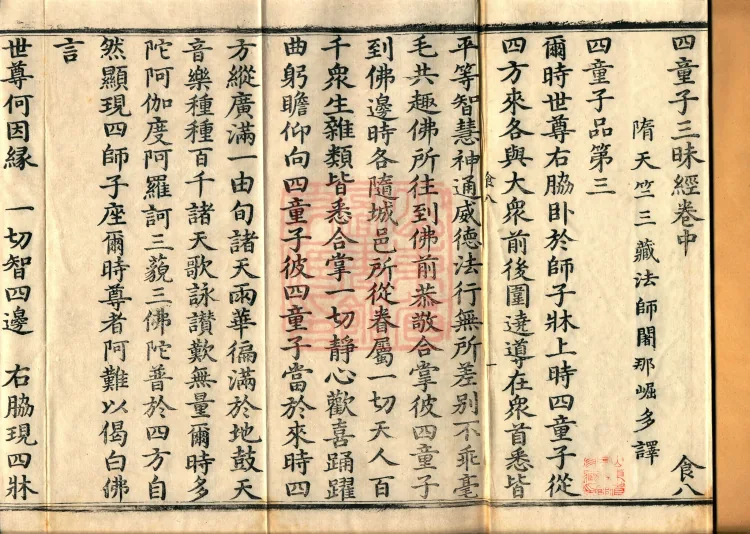 四童子三昧經卷中
食八
隋天竺三藏法師闍那崛多譯
四童子品第三
爾時世尊右脇卧於師子牀上時四童子從
四方來各與大衆前後圍遶導在衆首悉皆
食八
一
平等智慧神通威德法行無所差别不乖毫
毛共趣佛所往到佛前恭敬合掌彼四童子
到佛邊時各隨城邑所從眷屬一切天人百
千衆生雜類皆悉合掌一切靜心歡喜踊躍
曲躬瞻仰向四童子彼四童子當於來時四
方縱廣滿一由旬諸天雨華徧滿於地鼓天
音樂種種百千諸天歌詠讃歎無量爾時多
陀阿伽度阿羅訶三藐三佛陀普於四方自
然顯現四師子座爾時尊者阿難以偈白佛
言
世尊何因縁 一切智四邊 右脇現四牀